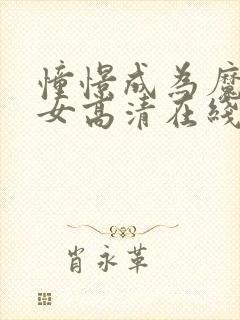 憧憬成为魔
女高清在线
肖永革